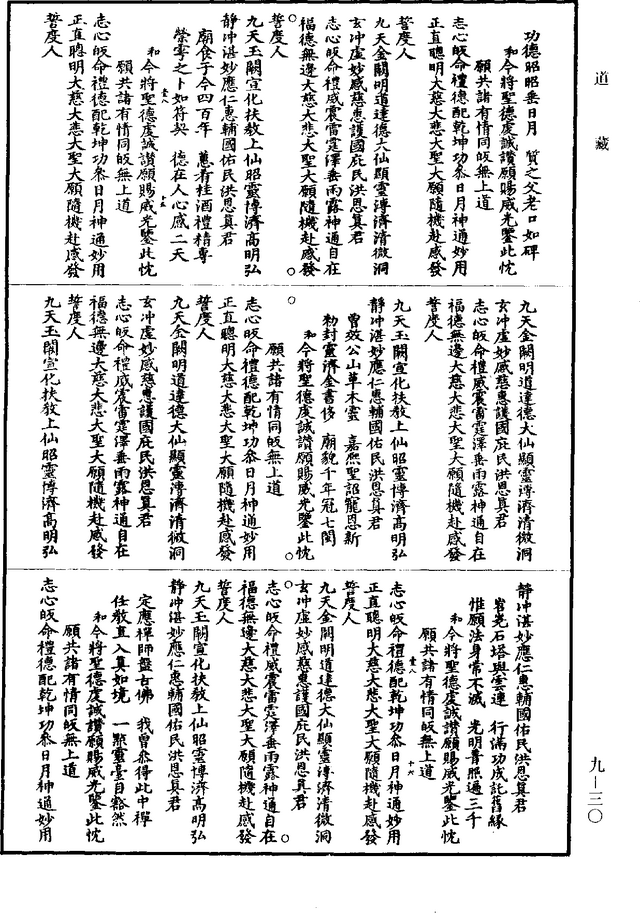 道藏
功德昭昭垂日月　質之父老口如碑
和今將聖德虔誠讚願賜威光鑒此忱
願共諸有情同皈無上道
志心皈命禮德配乾坤功叅日月神通妙用
正直聰明大慈大悲大聖大願隨機赴感發
誓度人
九天金闕明道達德大仙顯靈溥濟清微洞
玄沖虛妙感慈惠護國庇民洪恩真君
志心皈命禮威震雷霆澤垂雨露神通自在
福德無邊大慈大悲大聖大願隨機赴感發
誓度人
九天玉闕宣化扶教上仙昭靈博濟高明弘
靜沖湛妙應仁惠輔國佑民洪恩真君
廟食于今四百年　蕙肴桂酒禮精專
禜雩之卜如符契　德在人心感二天
和今將聖德虔誠讚願賜威光鑒此忱
願共諸有情同皈無上道
志心皈命禮德配乾坤功叅日月神通妙用
正直聰明大慈大悲大聖大願隨機赴感發
誓度人
九天金闕明道達德大仙顯靈溥濟清微洞
玄沖虛妙感慈惠護國庇民洪恩真君
志心皈命禮威震雷霆澤垂雨露神通自在
福德無邊大慈大悲大聖大願隨機赴感發
誓度人
九天玉闕宣化扶教上仙昭靈博濟高明弘
靜沖湛妙應仁惠輔國佑民洪恩真君
曾效公山草木靈　嘉熈聖詔寵恩新
勑封靈濟金書侈　廟貌千年冠七閩
和今將聖德虔誠讚願賜威光鑒此忱
願共諸有情同皈無上道
志心皈命禮德配乾坤功叅日月神通妙用
正直聰明大慈大悲大聖大願隨機赴感發
誓度人
九天金闕明道達德大仙顯靈溥濟清微洞
玄沖虛妙感慈惠護國庇民洪恩真君
志心皈命禮威震雷霆澤垂雨露神通自在
福德無邊大慈大悲大聖大願隨機赴感發
誓度人
九天玉闕宣化扶教上仙昭靈博濟高明弘
靜沖湛妙應仁惠輔國佑民洪恩真君
岧堯石塔與雲連　行滿功成託舊緣
惟願法身常不滅　光明普照遍三千
和今將聖德虔誠讚願賜威光鑒此忱
願共諸有情同皈無上道
志心皈命禮德配乾坤功叅日月神通妙用
正直聰明大慈大悲大聖大願隨機赴感發
誓度人
九天金闕明道達德大仙顯靈溥濟清微洞
玄沖虛妙感慈惠護國庇民洪恩真君
志心皈命禮威震雷霆澤垂雨露神通自在
福德無邊大慈大悲大聖大願隨機赴感發
誓度人
九天玉闕宣化扶教上仙昭靈博濟高明弘
靜沖湛妙應仁惠輔國佑民洪恩真君
定應禪師盤古佛　我曾叅得此中禪
任教直入真如境　一聚靈臺自豁然
和今將聖德虔誠讚願賜威光鑒此忱
願共諸有情同皈無上道
志心皈命禮德配乾坤功叅日月神通妙用
九—三〇